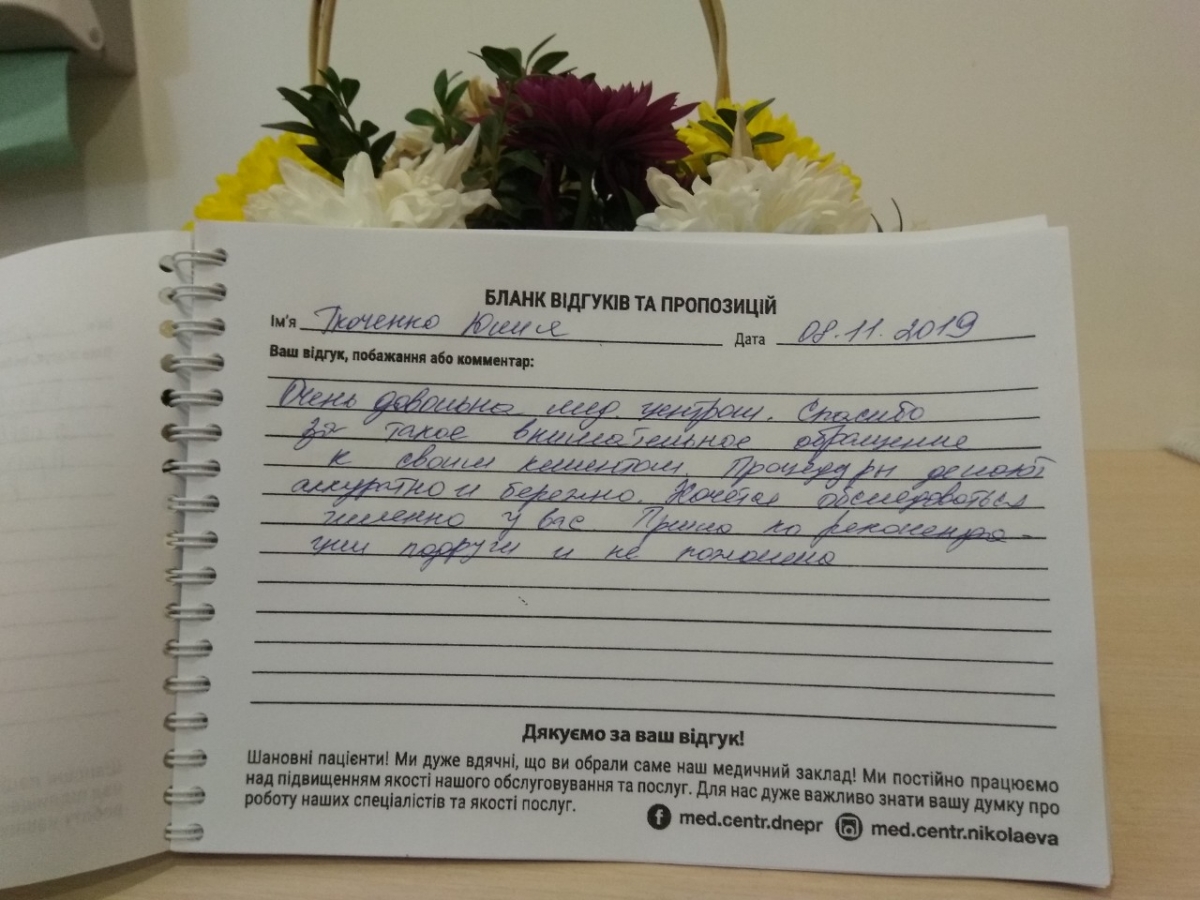 БЛАНК ВІДГУКІВ ТА ПРОПОЗИЦІЙ
Ім'я Ткаченко Юлия Дата 08.11.2019
Ваш відгук, побажання або комментар:
Очень довольна мед. центром. Спасибо
за такое внимательное обращение
к своим клиентам. Процедуры делают
аккуратно и бережно. Хочется обследоваться
именно у вас. Пришла по рекоменда-
ции подруги и не пожалела
Дякуємо за ваш відгук!
Шановні пацієнти! Ми дуже вдячні, що ви обрали саме наш медичний заклад! Ми постійно працюємо
над підвищенням якості нашого обслуговування та послуг. Для нас дуже важливо знати вашу думку про
роботу наших спеціалістів та якості послуг.
med.centr.dnepr med.centr.nikolaeva